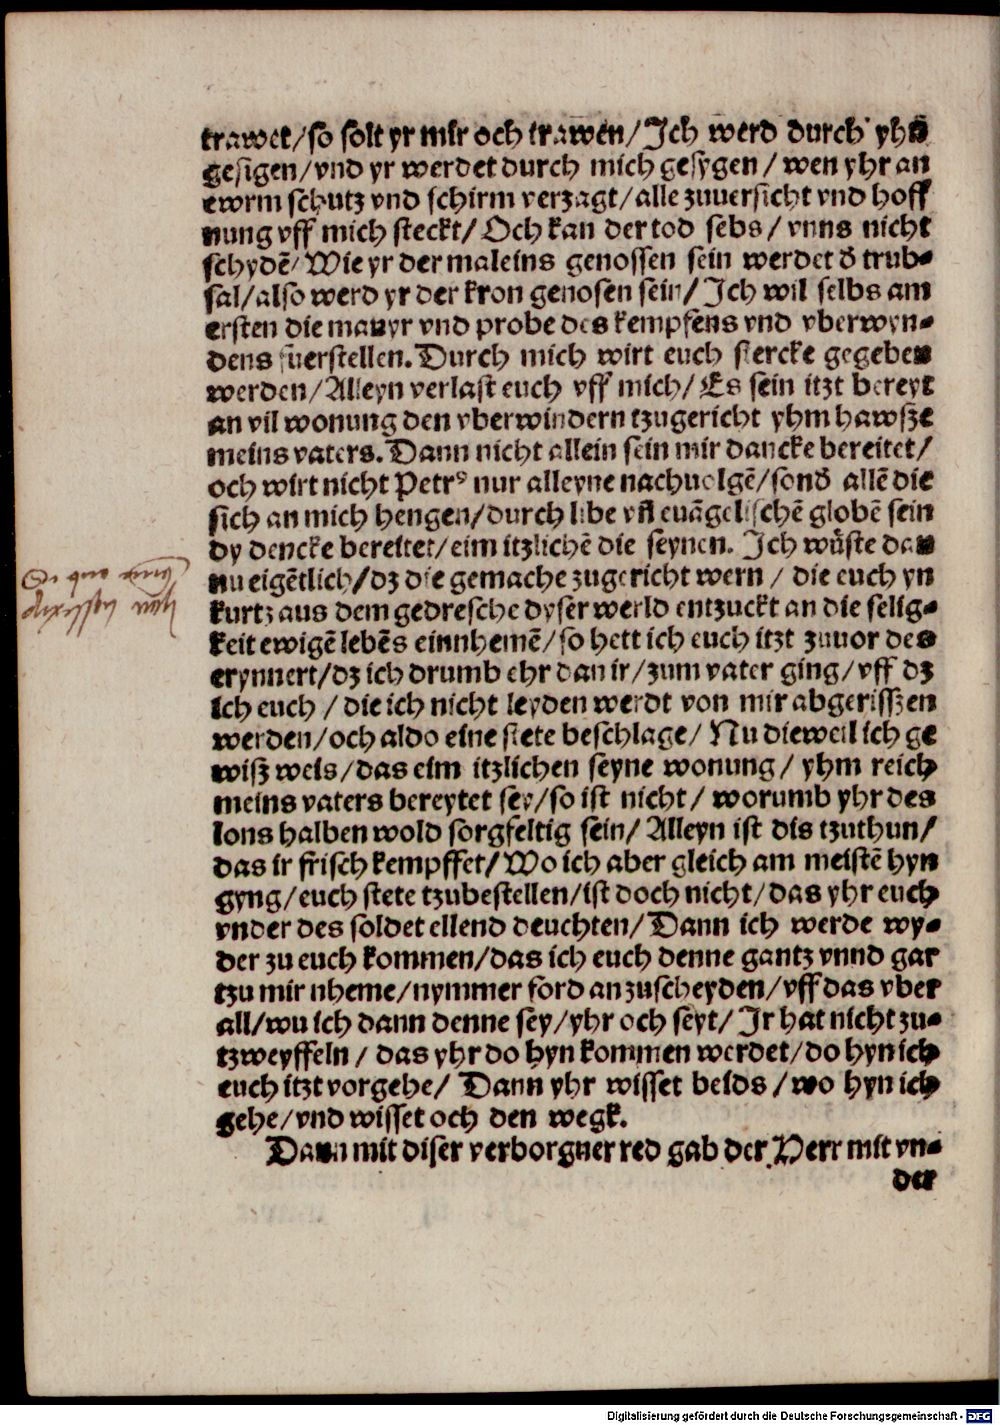 trawet/so solt yr mir och trawen/Ich werd durch yhn̄
gesigen/vnd yr werdet durch mich gesygen/ wen yhr an
ewrm schutz vnd schirm verzagt/alle zuuersicht vnd hoff
nung vff mich steckt/ Och kan der tod sebs/ vnns nicht
schydē/ Wie yr der maleins genossen sein werdet d̄ trub-
sal/also werd yr der kron genosen sein/ Ich wil selbs am
ersten die manyr vnd probe des kempfens vnd vberwyn-
dens fuerstellen. Durch mich wirt euch stercke gegeben
werden/Alleyn verlast euch vff mich/ Es sein itzt bereyt
an vil wonung den vberwindern tzugericht yhm hawsze
meins vaters. Dann nicht allein sein mir dancke bereitet/
och wirt nicht Petrꝰ nur alleyne nachuolgē/sond̄ allē die
sich an mich hengen/durch libe vn̄ euāgelischē globē sein
dy dencke bereitet/eim itzlichē die seynen. Ich wüste dan
nu eigētlich/dz die gemache zugericht wern / die euch yn
kurtz aus dem gedresche dyser werld entzuckt an die selig-
keit ewigē lebēs einnhemē/so hett ich euch itzt zuuor des
erynnert/dz ich drumb ehr dan ir/zum vater ging/vff dz
ich euch / die ich nicht leyden werdt von mir abgerisszen
werden/och aldo eine stete beschlage/ Nu dieweil ich ge
wisz weis/das eim itzlichen seyne wonung/ yhm reich
meins vaters bereytet sey/so ist nicht/ worumb yhr des
lons halben wold sorgfeltig sein/ Alleyn ist dis tzuthun/
das ir frisch kempffet/Wo ich aber gleich am meistē hyn
gyng/euch stete tzubestellen/ist doch nicht/das yhr euch
vnder des soldet ellend deuchten/ Dann ich werde wy-
der zu euch kommen/das ich euch denne gantz vnnd gar
tzu mir nheme/nymmer ford anzuscheyden/vff das vber
all/wu ich dann denne sey/yhr och seyt/ Ir hat nicht zu-
tzweyffeln / das yhr do hyn kommen werdet/do hyn ich
euch itzt vorgehe/ Dann yhr wisset beids/wo hyn ich
gehe/vnd wisset och den wegk.
Dann mit diser verborgner red gab der Herr mit vn-
der
Digitalisierung gefördert durch die Deutsche Forschungsgemeinschaft - DFG